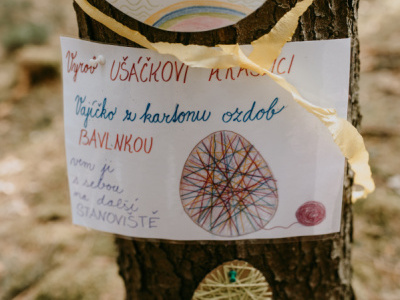 Vyrob UŠÁČKOVI KRASLICI
Vajíčko z kartonu ozdob
BAVLNKOU
vem ji
s sebou
na další
STANOVIŠTĚ